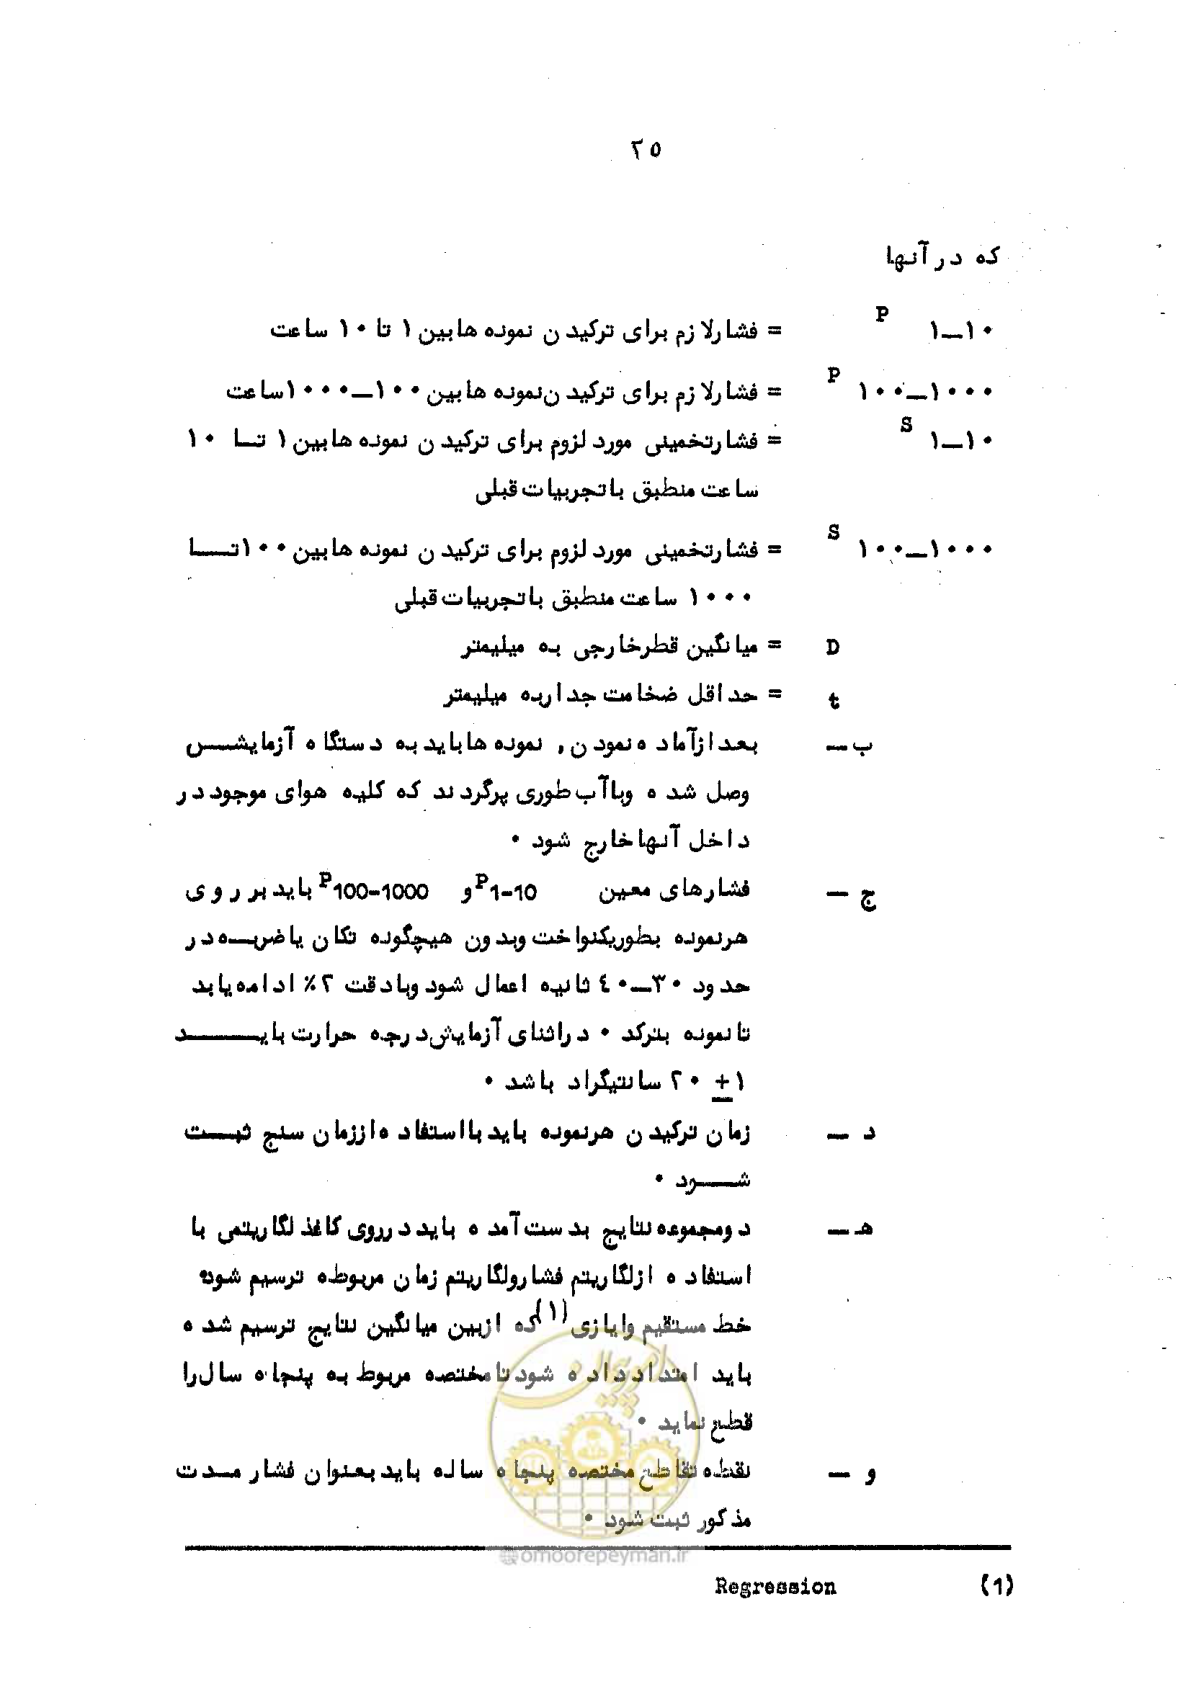 ۲۵
که درآنها
P ۱ــ۱۰ = فشارلازم برای ترکیدن نمونه هابین ۱ تا ۱۰ ساعت
P ۱۰۰ــ۱۰۰۰ = فشارلازم برای ترکیدن نمونه هابین ۱۰۰ــ۱۰۰۰ساعت
S ۱ــ۱۰ = فشارتخمینی مورد لزوم برای ترکیدن نمونه هابین ۱ تــا ۱۰
ساعت منطبق باتجربیات قبلی
S ۱۰۰ــ۱۰۰۰ = فشارتخمینی مورد لزوم برای ترکیدن نمونه هابین ۱۰۰تــا
۱۰۰۰ ساعت منطبق باتجربیات قبلی
D = میانگین قطرخارجی به میلیمتر
t = حداقل ضخامت جداربه میلیمتر
ب ــ بعدازآماده نمودن, نمونه هابایدبه دستگاه آزمایشــس
وصل شده وباآب طوری پرگردند که کلیه هوای موجوددر
داخل آنهاخارج شود •
ج ــ فشارهای معین P1-10 و P100-1000 بایدبر روی
هرنمونه بطوریکنواخت وبدون هیچگونه تکان یاضربــه در
حدود ۳۰ــ٤۰ ثانیه اعمال شود وبادقت ۲٪ ادامه یابد
تانمونه بترکد • دراثنای آزمایش درجه حرارت بایــــد
۱ ± ۲۰ سانتیگراد باشد •
د ــ زمان ترکیدن هرنمونه باید بااستفاده اززمان سنج ثبــت
شــــود •
هـ ــ دومجموعه نتایج بدست آمده باید درروی کاغذ لگاریتمی با
استفاده ازلگاریتم فشارولگاریتم زمان مربوطه ترسیم شود•
خط مستقیم وایازی(۱)که ازبین میانگین نتایج ترسیم شده
باید امتداد داده شود تامختصه مربوط به پنجاه سال را
قطع نماید •
و ــ نقطه تقاطع مختصه پنجاه ساله باید بعنوان فشار مــدت
مذکور ثبت شود •
امورپیمان
@omoorepeyman.ir
Regression (1)